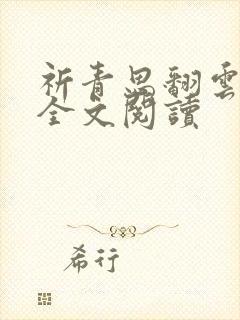 祈青思翻雲
全文閱讀
希行